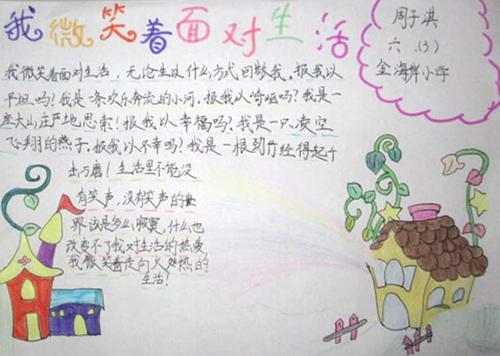 我微笑着面对生活
周子淇
六.(3)
金海岸小学
我微笑着面对生活,无论生活以什么方式回敬我。报我以
平坦吗?我是一条欢乐奔流的小河。报我以崎岖吗?我是一
座大山庄严地思索!报我以幸福吗?我是一只凌空
飞翔的燕子。报我以不幸吗?我是一根劲竹经得起千
击万磨!生活里不能没
有笑声,没有笑声的世
界该是多么寂寞,什么也
改变不了我对生活的热爱
我微笑着走向火热的
生活!